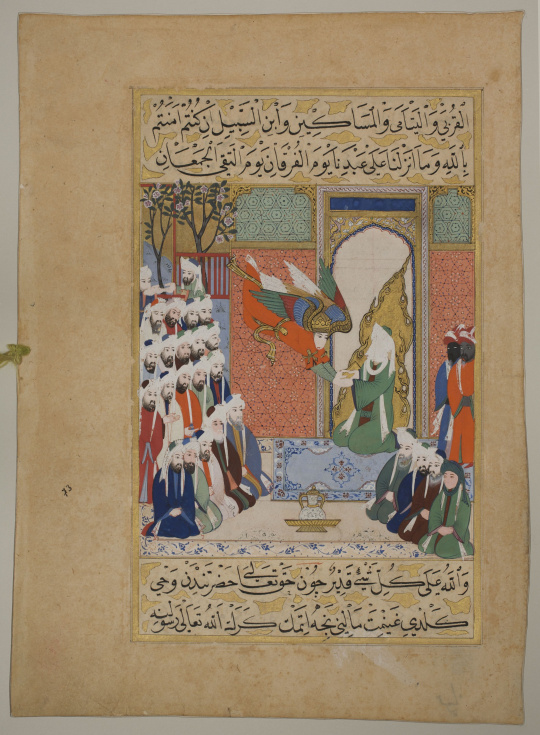 القربى واليتامى والمساكين وابن السبيل ان كنتم امنتم
بالله وما انزلنا على عبدنا يوم الفرقان يوم التقى الجمعان
والله على كل شئ قدير چون حق تعالى حضرتندن وحي
كلدي غنيمت مالني نجه اتمك كرك الله تعالى رسولينه